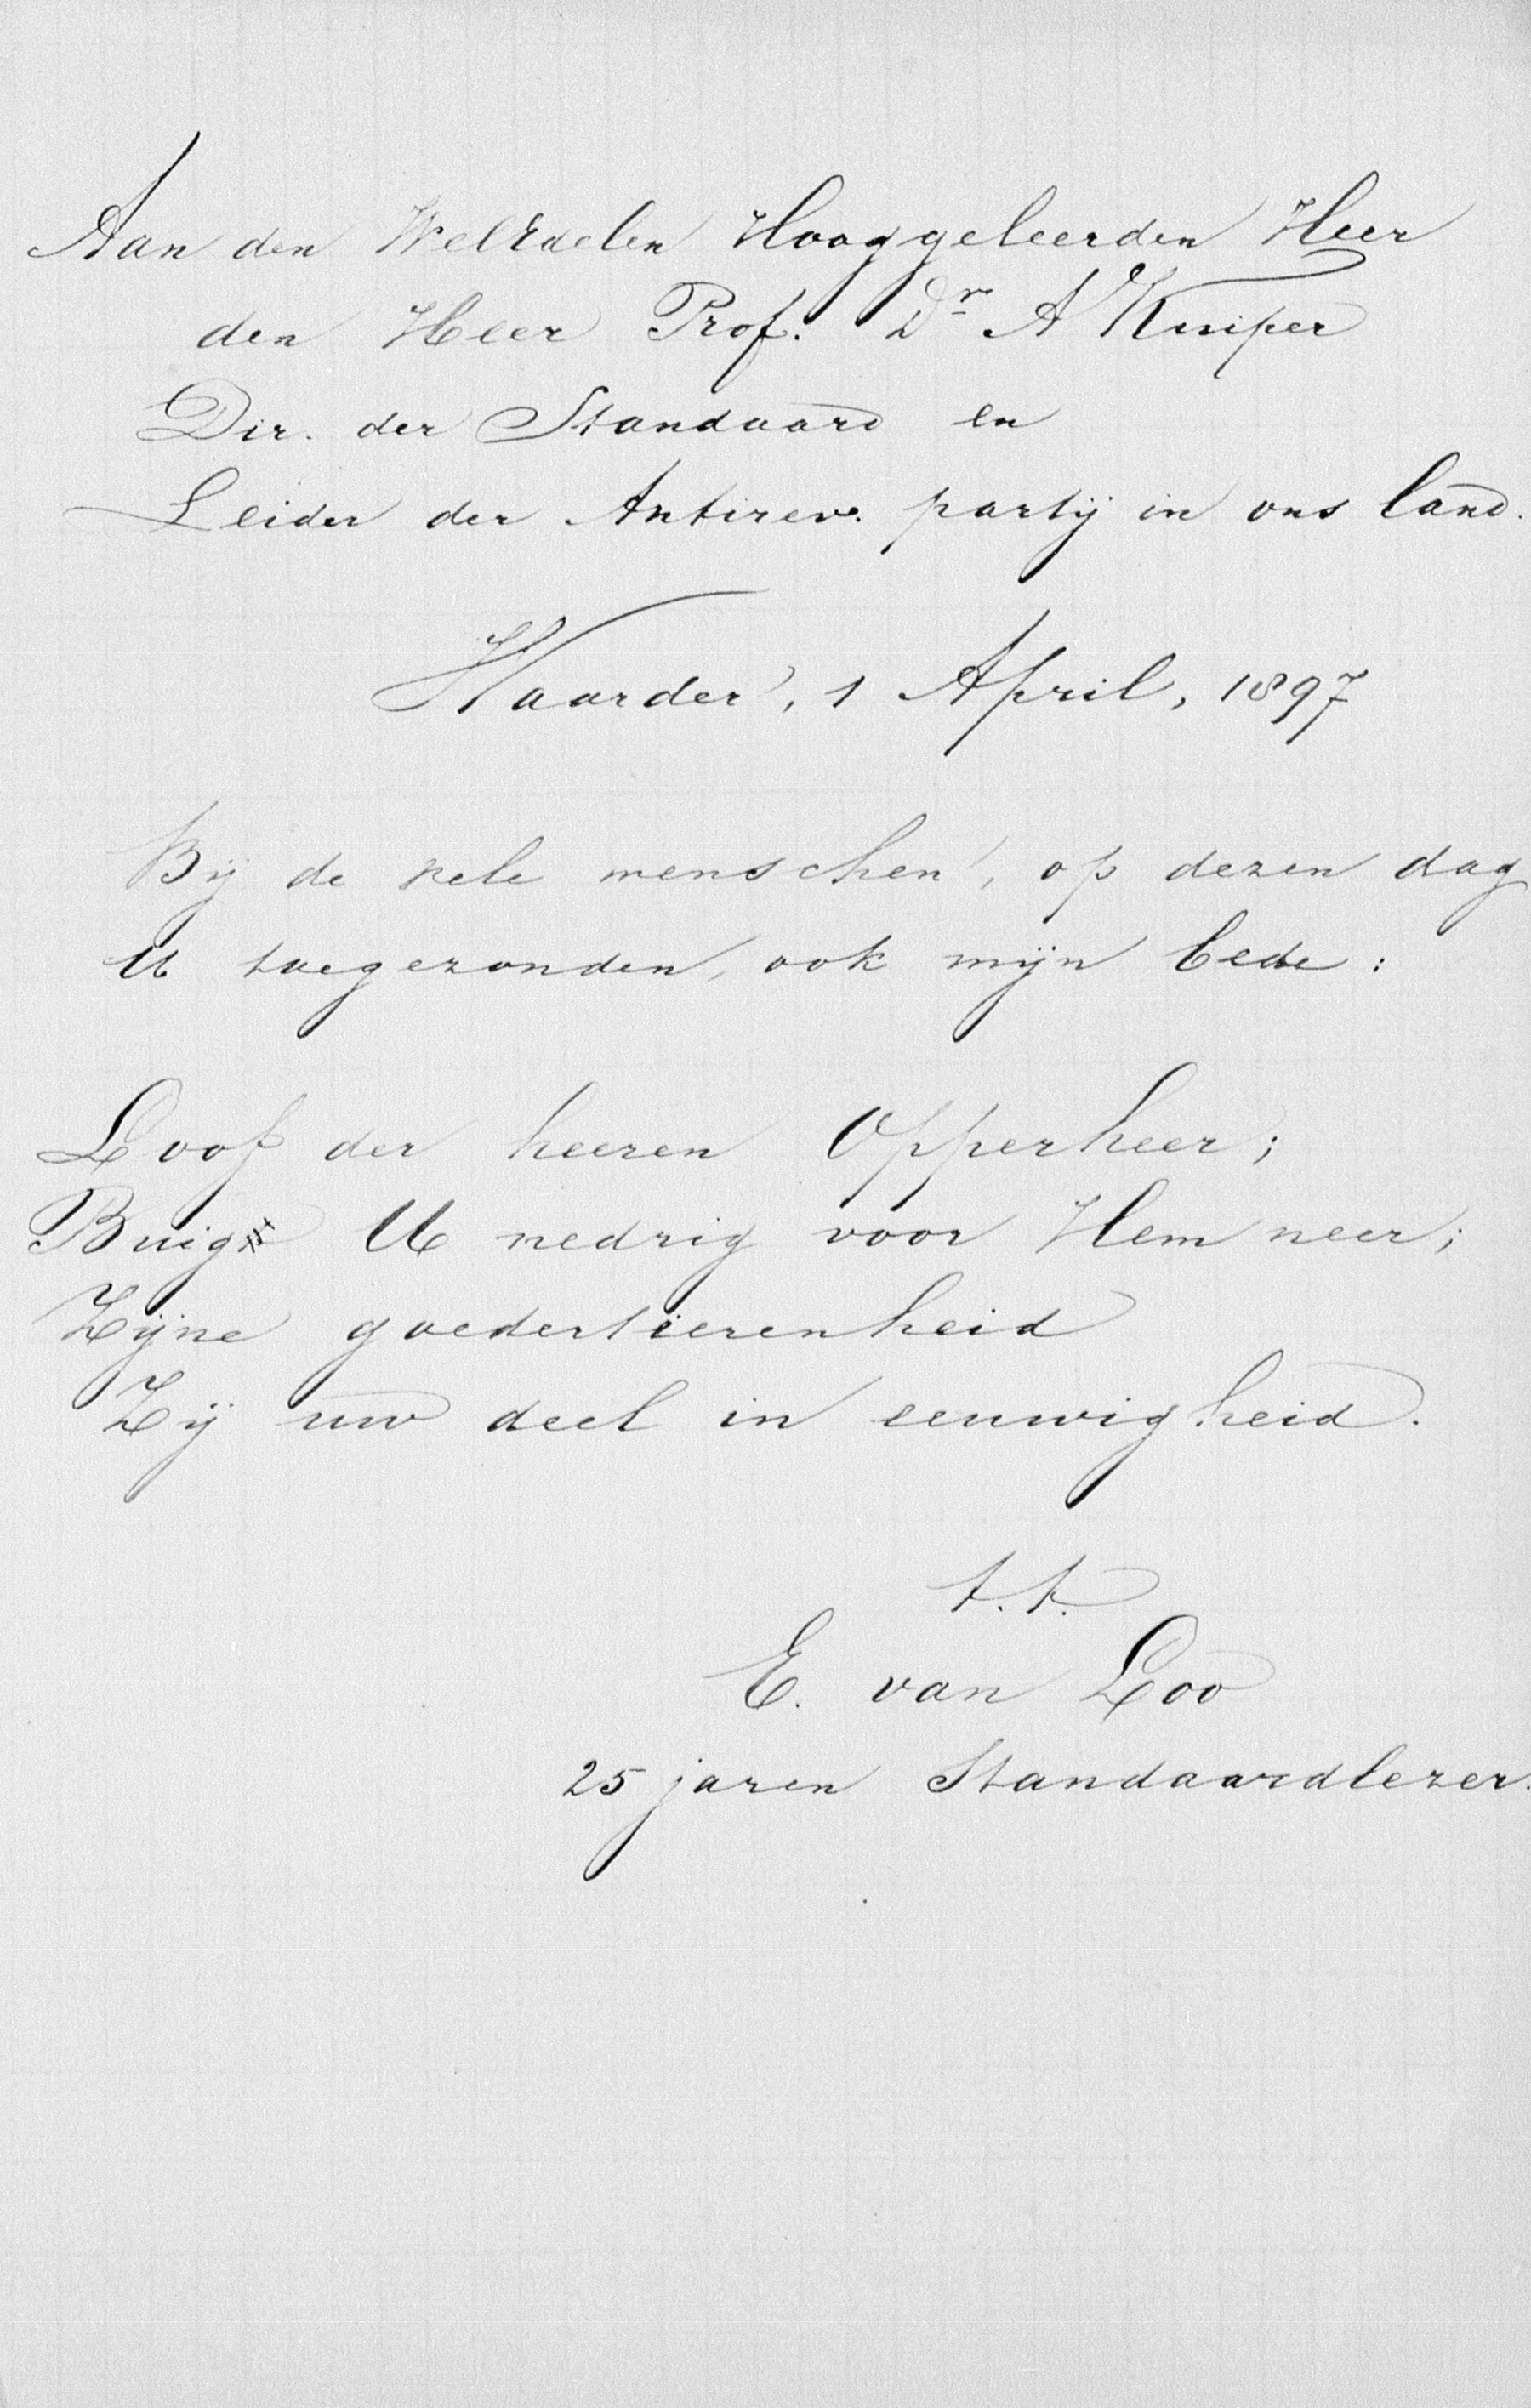 Aan den WelEdelen Hooggeleerden Heer
den Heer Prof. Dr A Kuiper
Dir. der Standaard en
Leider der Antirev. partij in ons land.
Waarder, 1 April, 1897
Bij de vele menschen, op dezen dag
U toegezonden, ook mijn bede:
Loof der heeren Opperheer;
Buig U nedrig voor Hem neer;
Zijne goedertierenheid
Zij uw deel in eeuwigheid.
t.t.
E. van Loo
25 jaren Standaardlezer.